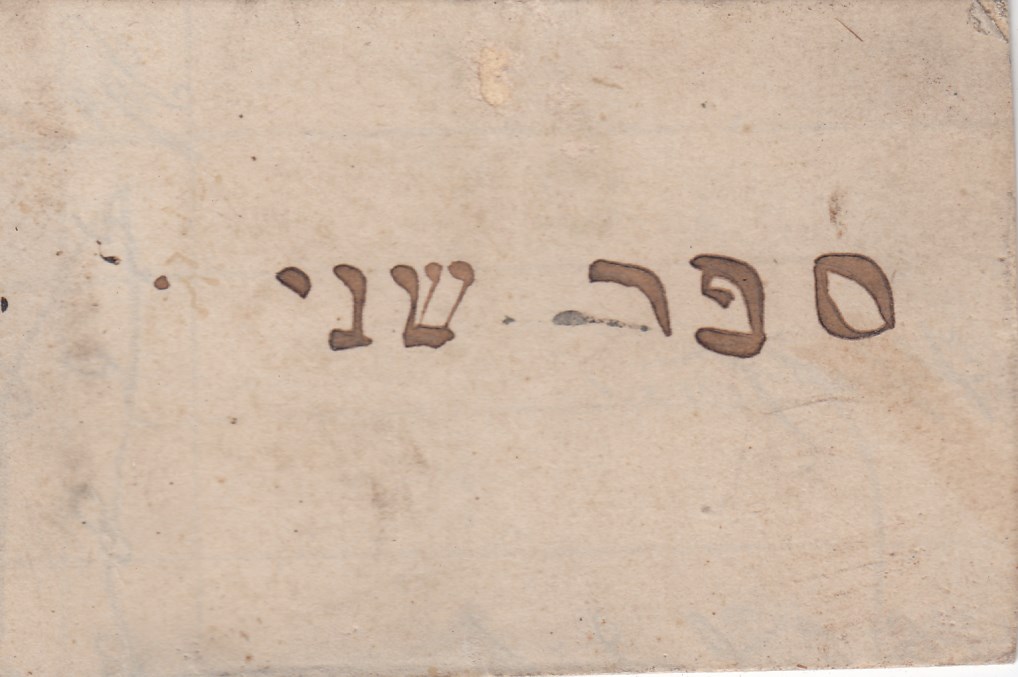 ספר שני